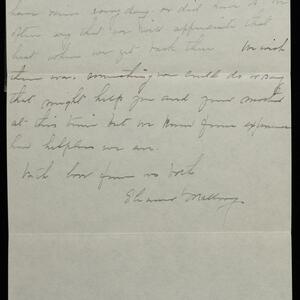 have rain every day. or did
other say that we will appreciate that
heat when we get back there We wish
there was something we could do or say
that might help you and your mother
at this time but we know from experience
how helpless we are.
With love from us both